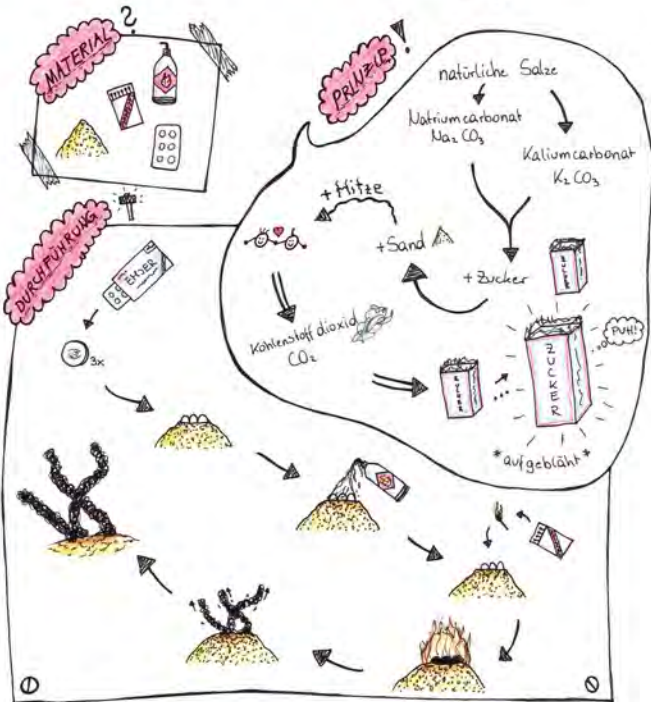 MATERIAL ?
PRINZIP !
natürliche Salze
Natriumcarbonat
Na₂CO₃
Kaliumcarbonat
K₂CO₃
+ Zucker
ZUCKER
+ Sand
+ Hitze
Kohlenstoffdioxid
CO₂
ZUCKER
ZUCKER
PUH!
*aufgebläht*
DURCHFÜHRUNG
EMSER
3x